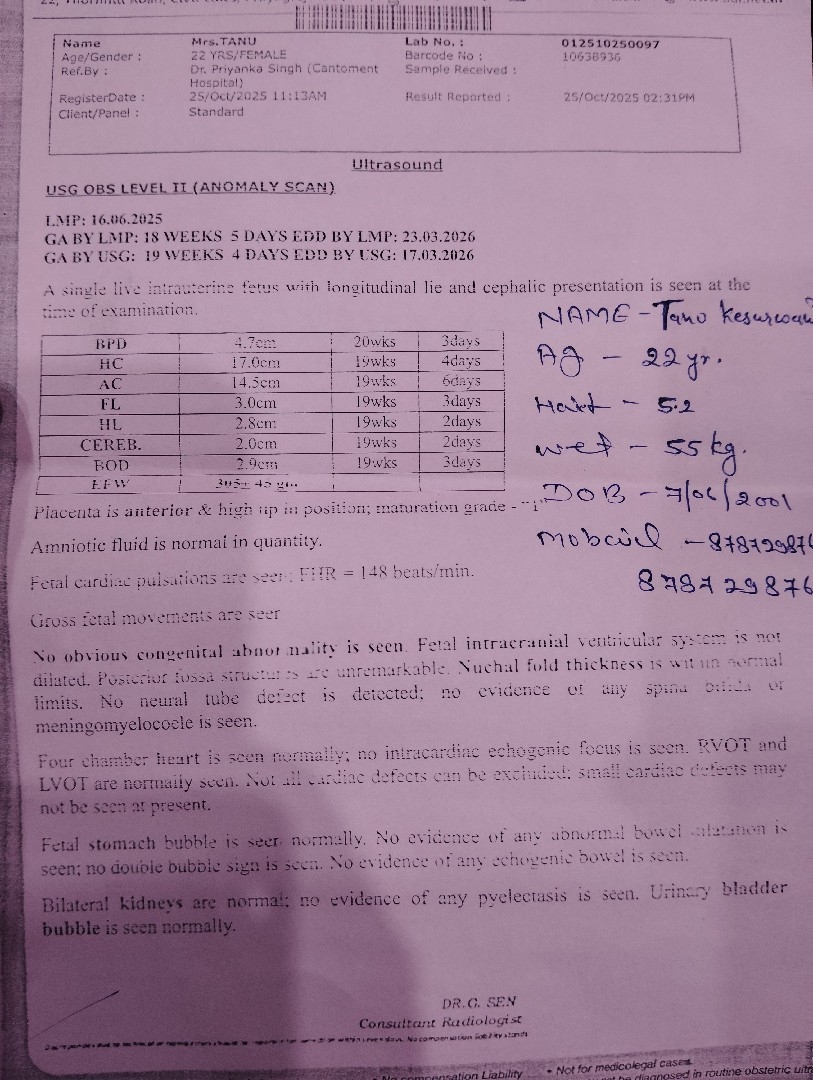 Name Mrs.TANU Lab No. : 012510250097
Age/Gender : 22 YRS/FEMALE Barcode No : 10638936
Ref.By : Dr. Priyanka Singh (Cantoment Sample Received :
Hospital)
RegisterDate : 25/Oct/2025 11:13AM Result Reported : 25/Oct/2025 02:31PM
Client/Panel : Standard
Ultrasound
USG OBS LEVEL II (ANOMALY SCAN)
LMP: 16.06.2025
GA BY LMP: 18 WEEKS 5 DAYS EDD BY LMP: 23.03.2026
GA BY USG: 19 WEEKS 4 DAYS EDD BY USG: 17.03.2026
A single live intrauterine fetus with longitudinal lie and cephalic presentation is seen at the
time of examination.
NAME - Tanu
BPD 4.7cm 20wks 3days
HC 17.0cm 19wks 4days
AC 14.5cm 19wks 6days
FL 3.0cm 19wks 3days
HL 2.8cm 19wks 2days
CEREB. 2.0cm 19wks 2days
BOD 2.9cm 19wks 3days
EFW 305± 45 gm
Ag - 22 yr.
Haist - 5.2
wet - 55 kg.
DOB - 7/06/2001
Mobail - 878729876
878729876
Placenta is anterior & high up in position; maturation grade - "I"
Amniotic fluid is normal in quantity.
Fetal cardiac pulsations are seen; FHR = 148 beats/min.
Gross fetal movements are seen
No obvious congenital abnormality is seen. Fetal intracranial ventricular system is not
dilated. Posterior fossa structures are unremarkable. Nuchal fold thickness is within normal
limits. No neural tube defect is detected; no evidence of any spina bifida or
meningomyelocoele is seen.
Four chamber heart is seen normally; no intracardiac echogenic focus is seen. RVOT and
LVOT are normally seen. Not all cardiac defects can be excluded; small cardiac defects may
not be seen at present.
Fetal stomach bubble is seen normally. No evidence of any abnormal bowel dilatation is
seen; no double bubble sign is seen. No evidence of any echogenic bowel is seen.
Bilateral kidneys are normal; no evidence of any pyelectasis is seen. Urinary bladder
bubble is seen normally.
DR.G. SEN
Consultant Radiologist
No compensation liability stands
No compensation Liability • Not for medicolegal cases
be diagnosed in routine obstetric